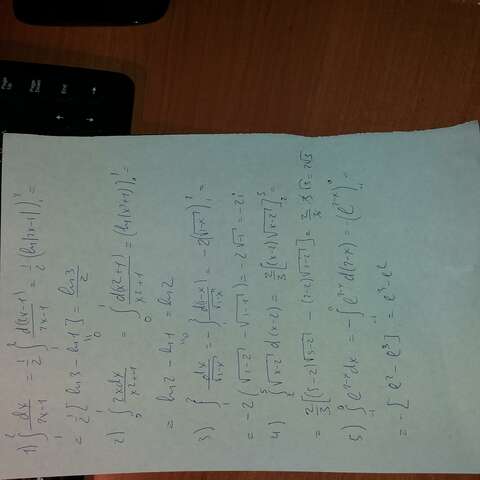 1) ∫₁² dx/(2x-1) = 1/2 ∫₁² d(2x-1)/(2x-1) = 1/2 (ln|2x-1|)|₁² =
= 1/2 [ln3 - ln1] = ln3/2
2) ∫₀¹ 2xdx/(x²+1) = ∫₀¹ d(x²+1)/(x²+1) = (ln|x²+1|)|₀¹ =
= ln2 - ln1 = ln2
3) ∫₁² dx/√(1-x) = -∫₁² d(1-x)/√(1-x) = -2(√(1-x))|₁² =
= -2(√(1-2) - √(1-1)) = -2√-1 = -2i
4) ∫₂⁵ √(x-2) d(x-2) = 2/3 [(x-2)√(x-2)]₂⁵ =
= 2/3 [(5-2)√(5-2) - (2-2)√(2-2)] = 2/3 · 3 √3 = 2√3
5) ∫₋₁⁰ e^(2-x) dx = -∫₋₁⁰ e^(2-x) d(2-x) = -(e^(2-x))|₋₁⁰ =
= -[e² - e³] = e³ - e²
End